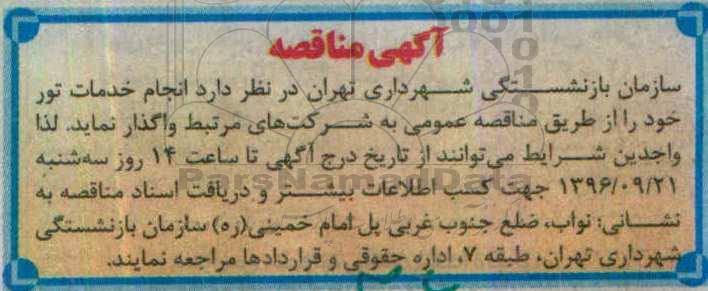 آگهی مناقصه
سازمان بازنشستگی شهرداری تهران در نظر دارد انجام خدمات تور
خود را از طریق مناقصه عمومی به شرکت‌های مرتبط واگذار نماید. لذا
واجدین شرایط می‌توانند از تاریخ درج آگهی تا ساعت ۱۴ روز سه‌شنبه
۱۳۹۶/۰۹/۲۱ جهت کسب اطلاعات بیشتر و دریافت اسناد مناقصه به
نشانی: نواب، ضلع جنوب غربی پل امام خمینی(ره) سازمان بازنشستگی
شهرداری تهران، طبقه ۷، اداره حقوقی و قراردادها مراجعه نمایند.
ParsNamadData